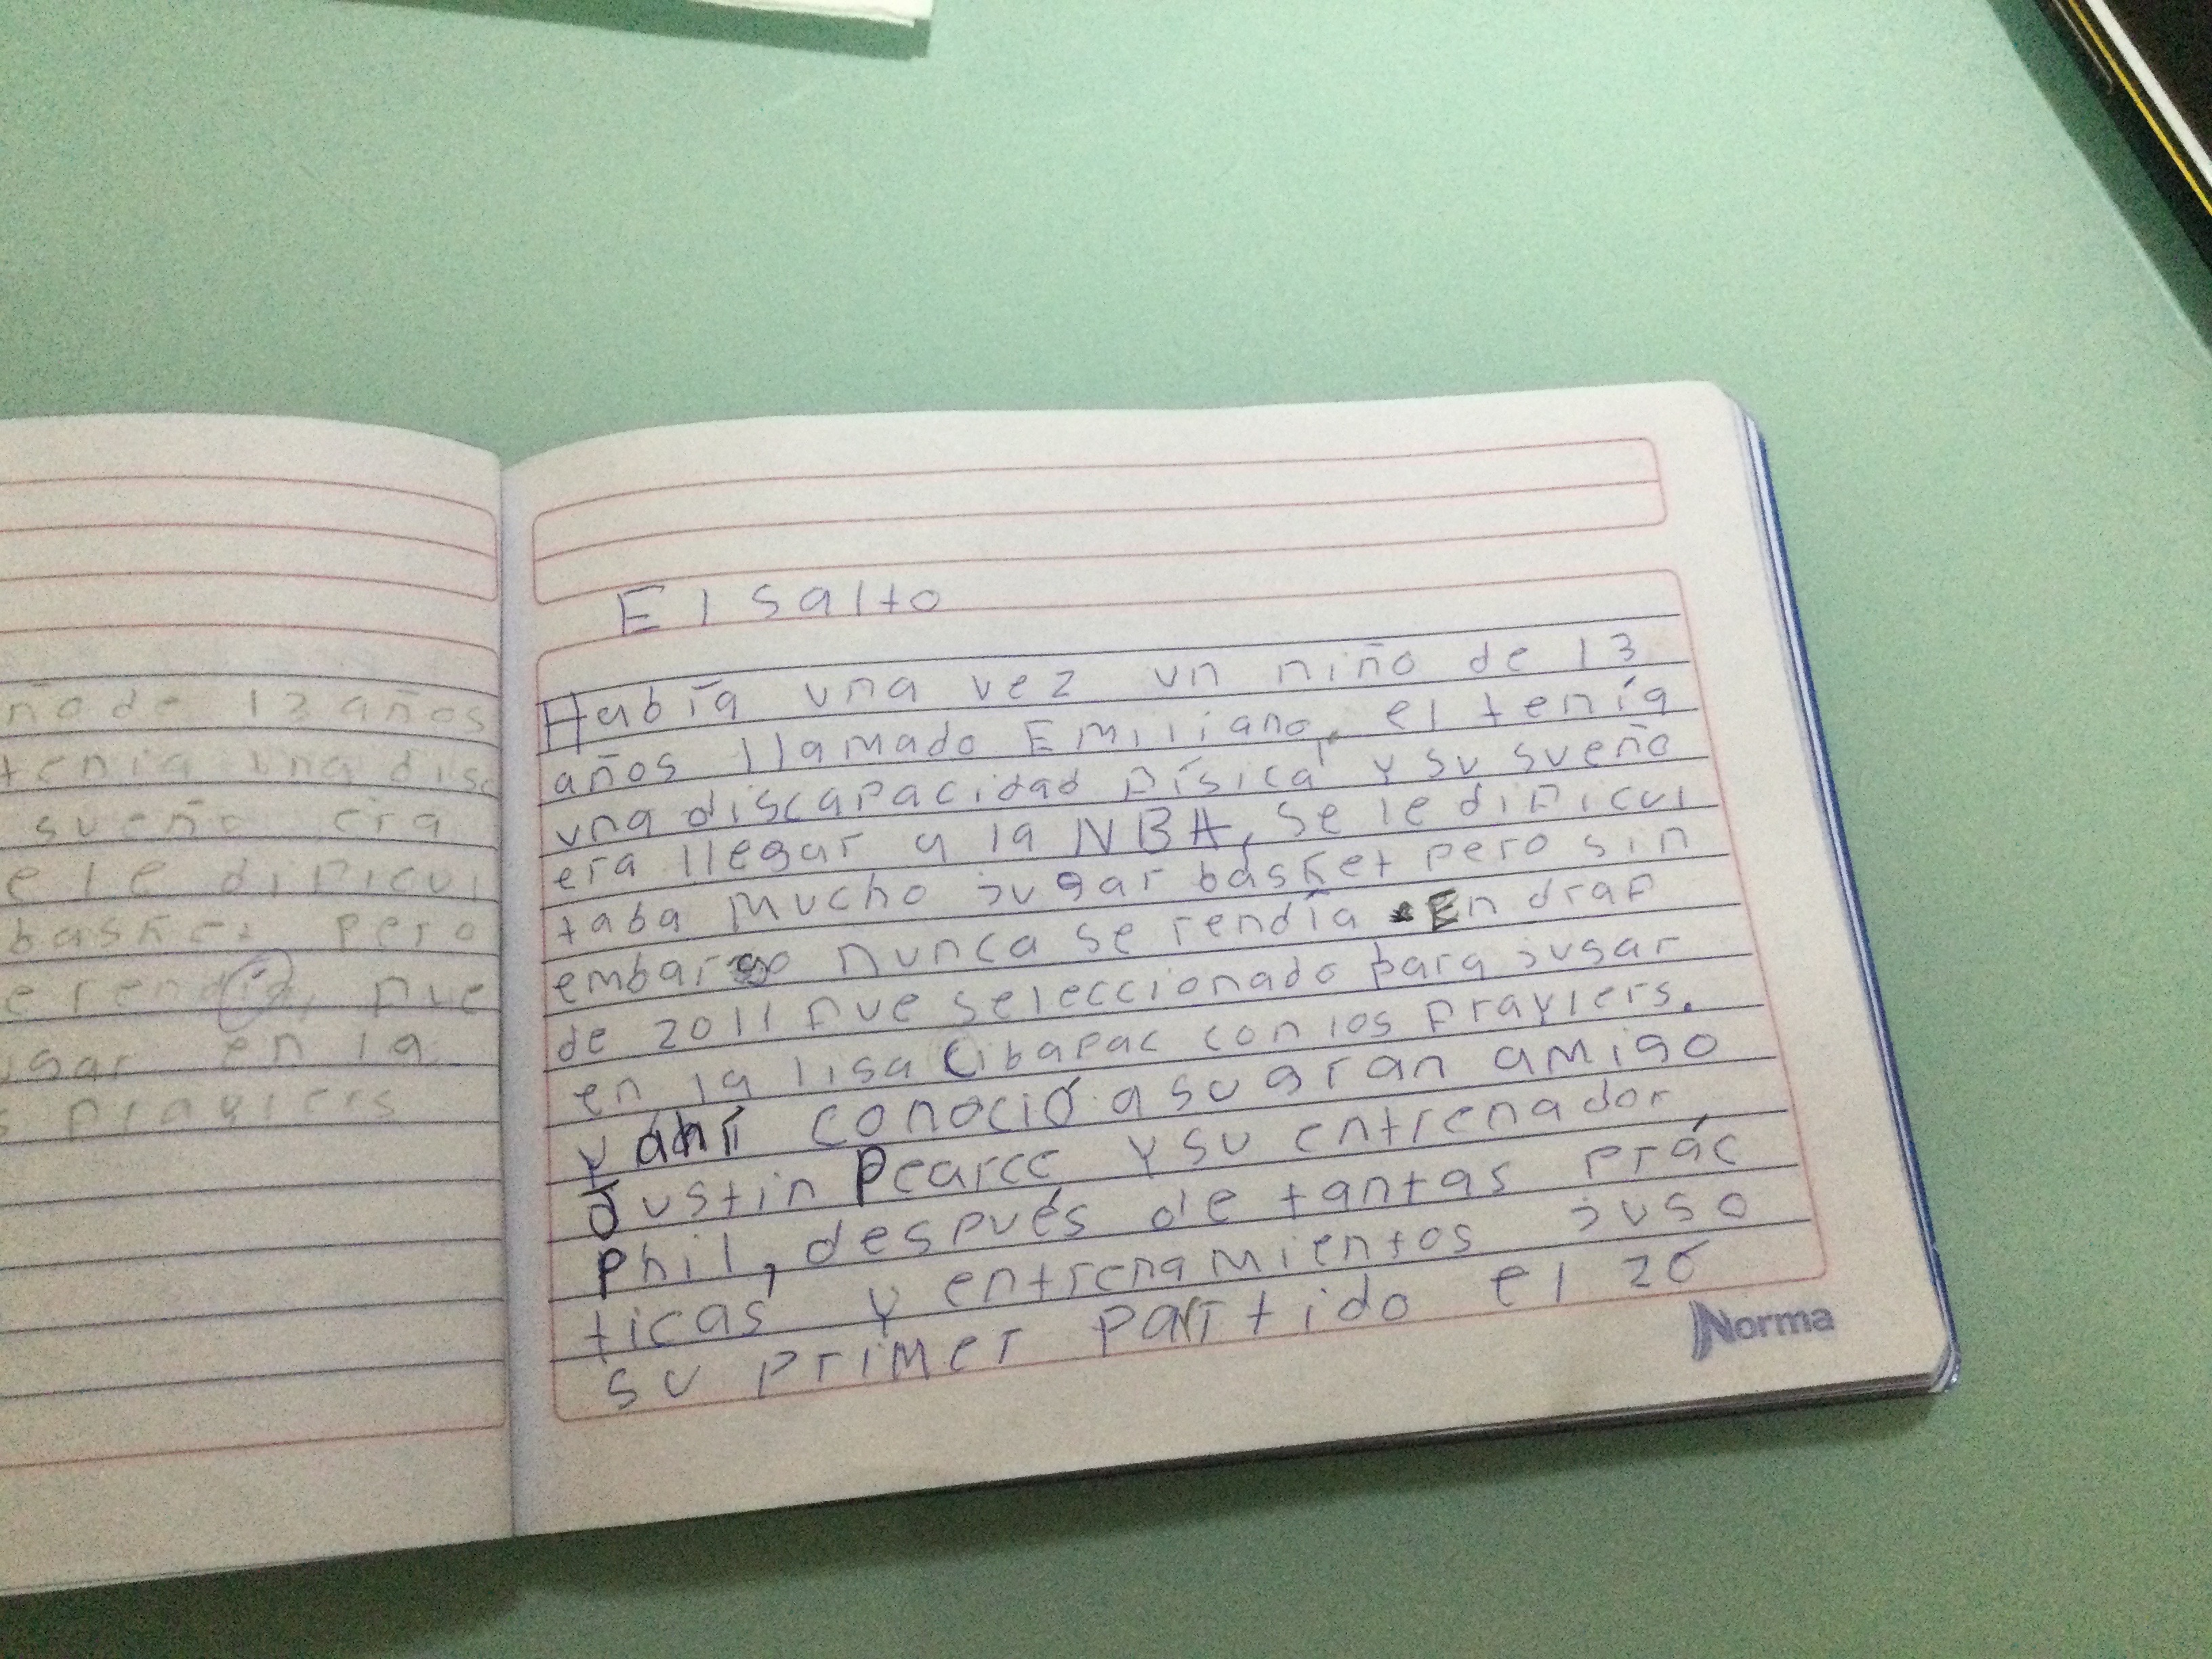 ño de 13 años
tenía una disc
sueño era
e le dificul
basket pero
e rendía, fue
ugar en la
s fraylers
El salto
Había una vez un niño de 13
años llamado Emiliano, el tenía
una discapacidad física y su sueño
era llegar a la NBA, se le dificul
taba mucho jugar basket pero sin
embargo nunca se rendía. En draf
de 2011 fue seleccionado para jugar
en la liga Cibapac con los fraylers.
y ahí conoció a su gran amigo
Justin Pearce y su entrenador
Phil, después de tantas prác
ticas y entrenamientos jugo
su primer partido el 26
Norma